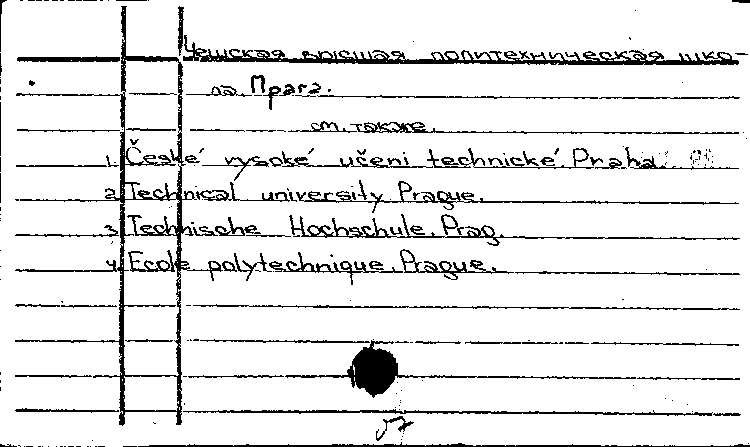 Чешская высшая политехническая шко-
ла. Прага.
см. также.
1. České vysoké učeni technické. Praha.
2. Technical university. Prague.
3. Technische Hochschule. Prag.
4. Ecole polytechnique. Prague.